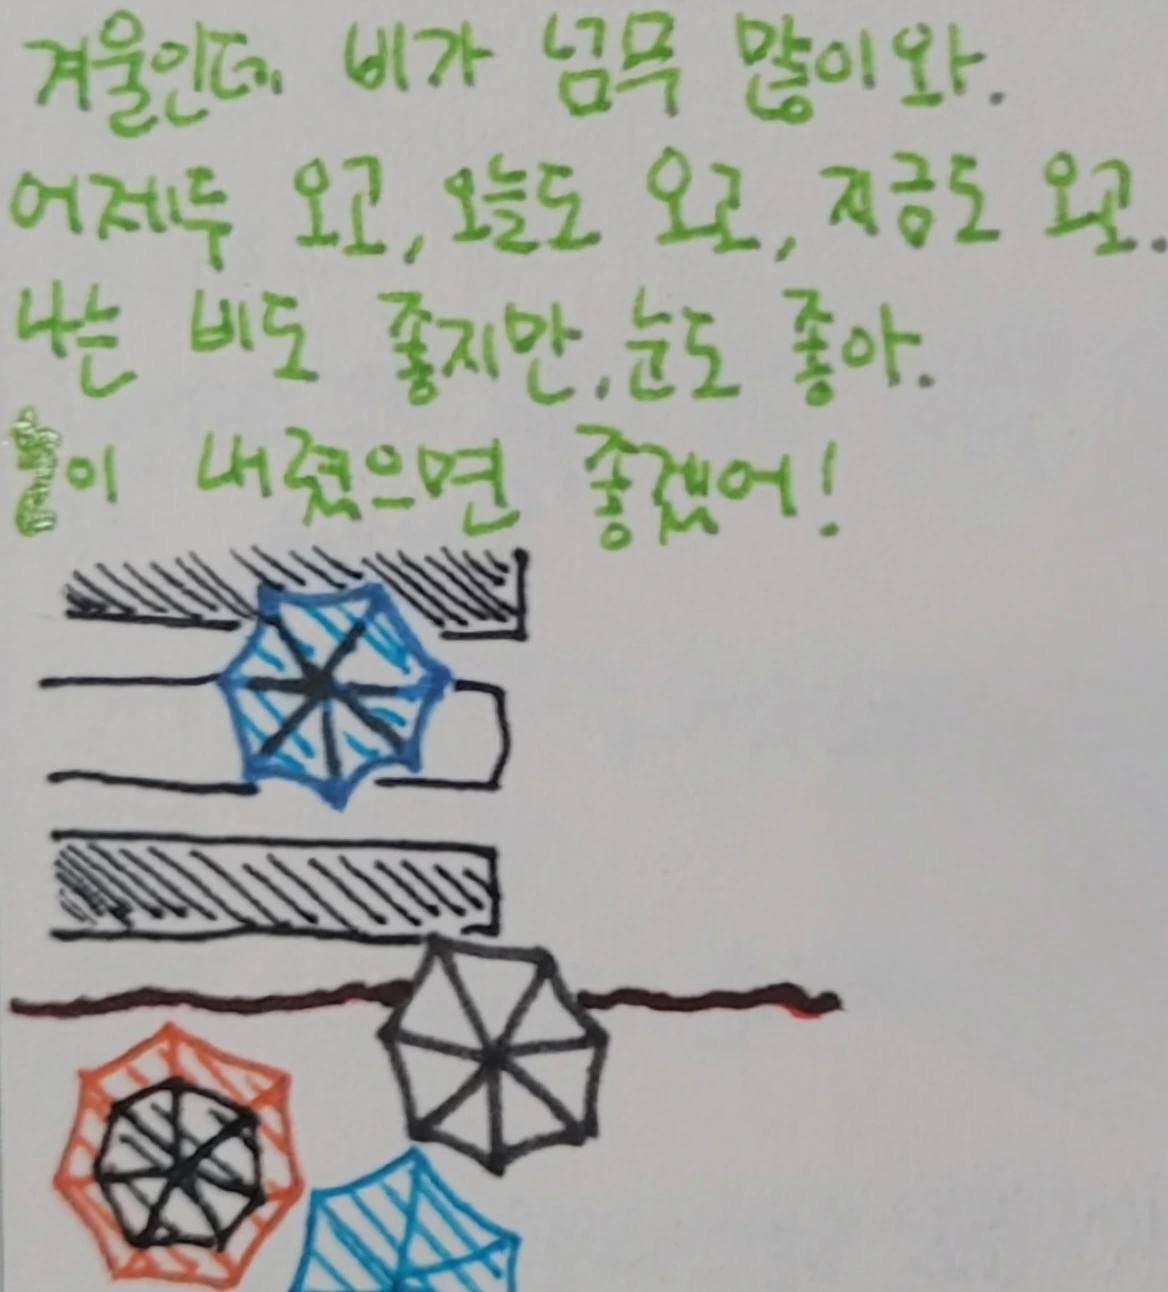 겨울인데 비가 넘무 많이 와.
어제두 오고, 오늘도 오고, 지금도 오고.
나는 비도 좋지만, 눈도 좋아.
이 내렸으면 좋겠어!